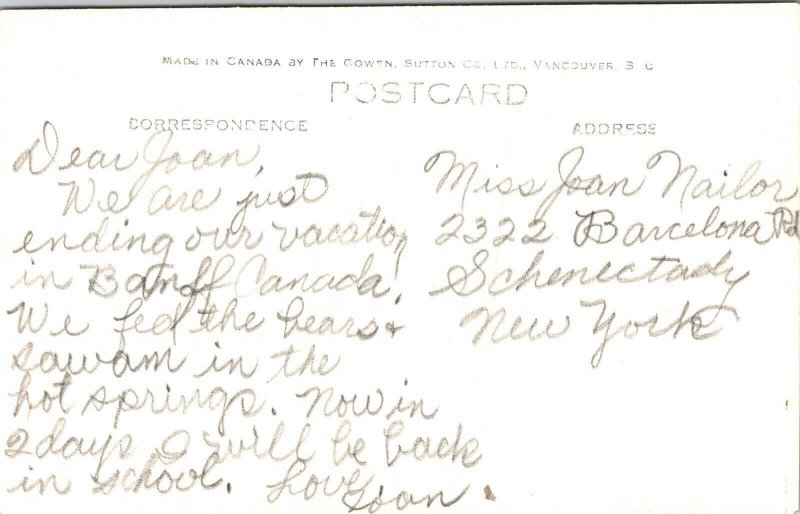 MADE IN CANADA BY THE GOWEN, SUTTON CO. LTD., VANCOUVER, B C
POSTCARD
CORRESPONDENCE
ADDRESS
Dear Joan,
We are just
ending our vacation
in Banff Canada!
We fed the bears +
sawam in the
hot springs. Now in
2 days I will be back
in school. Love Joan.
Miss Joan Nailor
2322 Barcelona Rd
Schenectady
New York